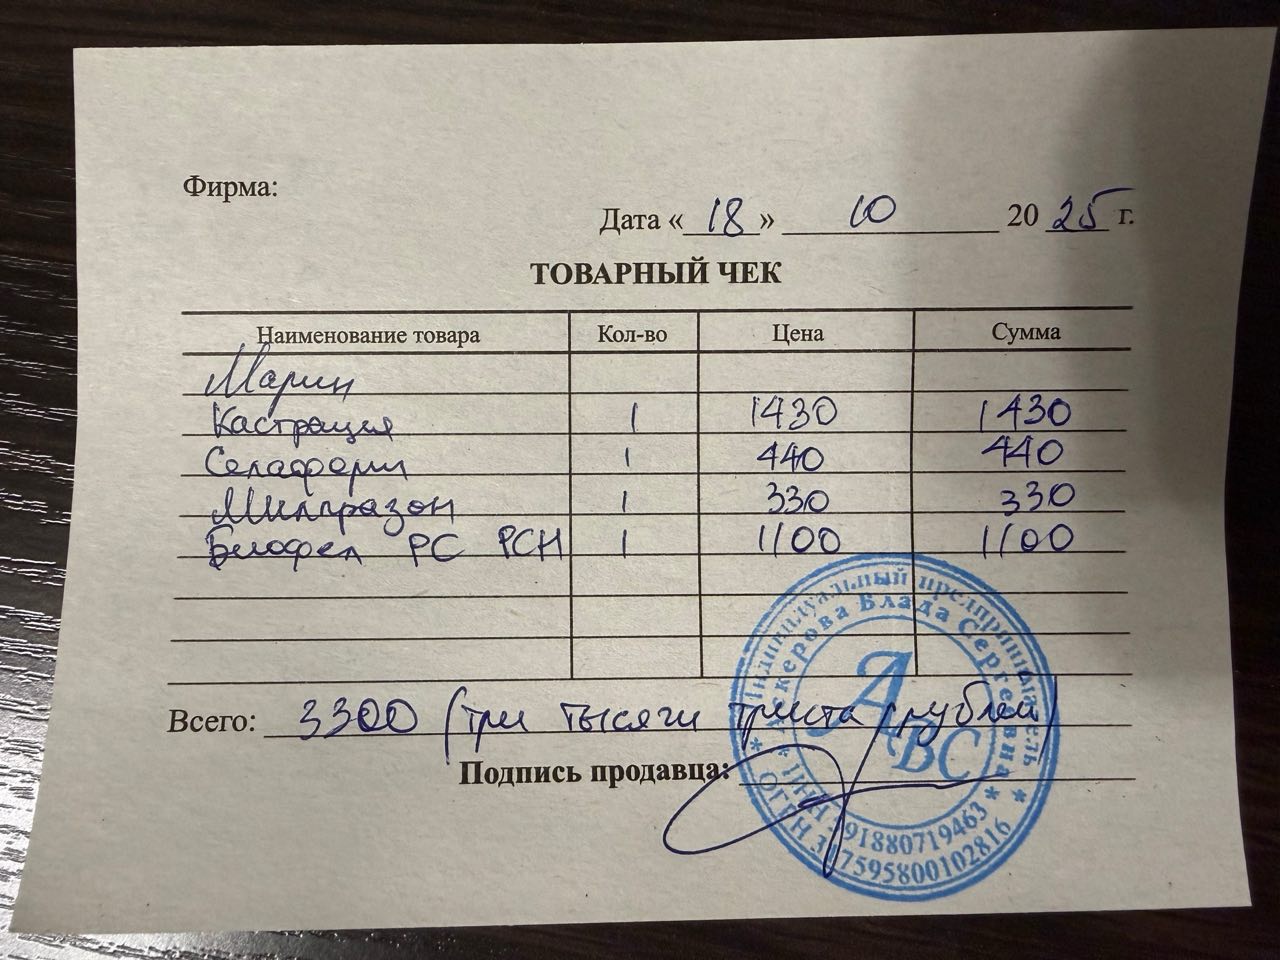 Фирма:
Дата « 18 » 10 20 25 г.
ТОВАРНЫЙ ЧЕК
Наименование товара Кол-во Цена Сумма
Марин
Кастрация 1 1430 1430
Селафорт 1 440 440
Милпразон 1 330 330
Биофел РС РСН 1 1100 1100
Всего: 3300 (три тысячи триста рублей)
Подпись продавца:
* Индивидуальный предприниматель *
* Аскерова Влада Сергеевна *
АВС
ОГРН 317595800102816